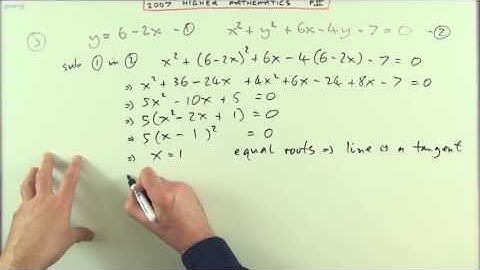 2007 HIGHER MATHEMATICS PII
③ y = 6 - 2x - ① x² + y² + 6x - 4y - 7 = 0 - ②
sub ① in ② x² + (6-2x)² + 6x - 4(6-2x) - 7 = 0
⇒ x² + 36 - 24x + 4x² + 6x - 24 + 8x - 7 = 0
⇒ 5x² - 10x + 5 = 0
⇒ 5(x² - 2x + 1) = 0
⇒ 5(x - 1)² = 0
⇒ x = 1 equal roots ⇒ line is a tangent